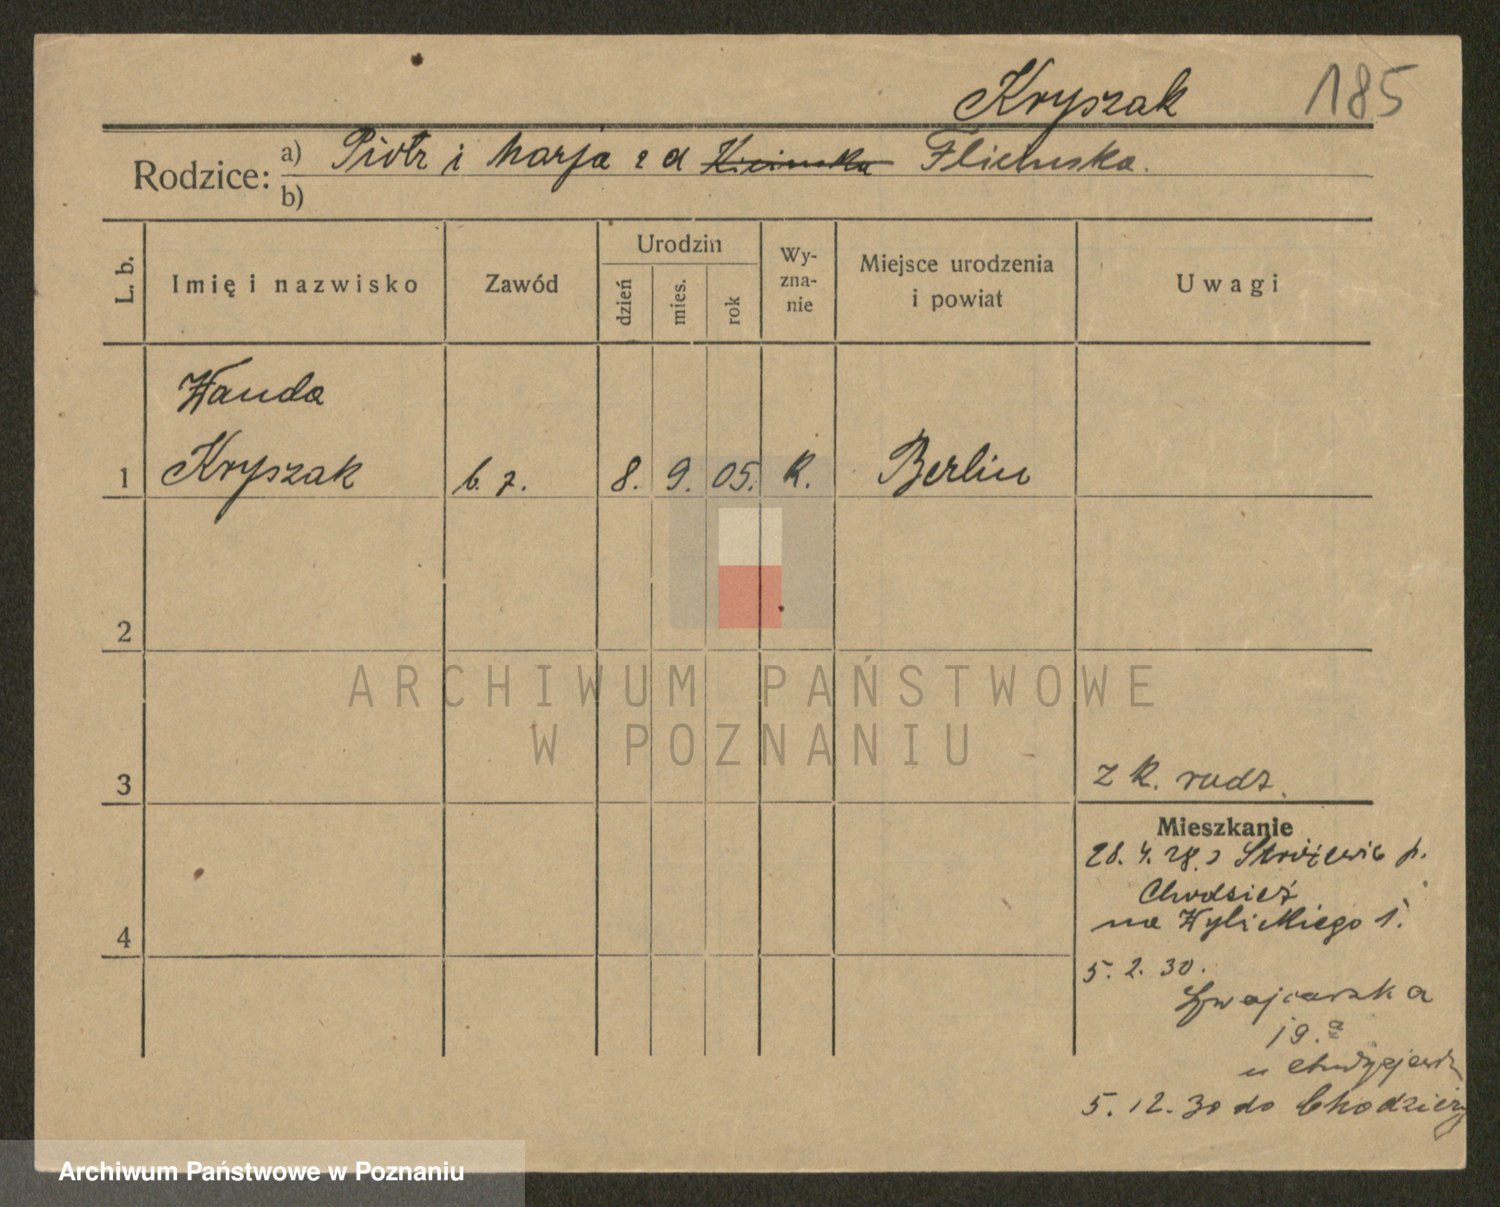 Kryszak 185
Rodzice: a) Piotr i Marja z d Flieluska.
b)
L. b. Imię i nazwisko Zawód Urodzin dzień mies. rok Wy-zna-nie Miejsce urodzenia i powiat Uwagi
Wanda
1 Kryszak b. z. 8. 9. 05. K. Berlin
2
ARCHIWUM PAŃSTWOWE
W POZNANIU
3 z K. rodz.
Mieszkanie
28. 4. 28 z Stróżewic p.
Chodzież
na Wybickiego 1.
4
5. 2. 30.
Szwajcarska
19.a
u
5. 12. 30 do Chodzieży
Archiwum Państwowe w Poznaniu